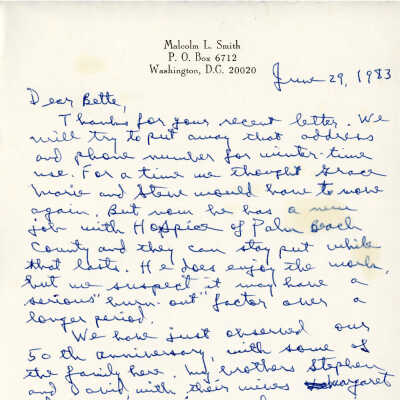 Malcolm L. Smith
P. O. Box 6712
Washington, D.C. 20020
June 29, 1983
Dear Bette,
Thanks for your recent letter. We
will try to put away that address
and phone number for winter-time
use. For a time we thought Grace
Marie and Steve would have to move
again. But now he has a new
job with Hospice of Palm Beach
County and they can stay put while
that lasts. He does enjoy the work,
but we suspect it may have a
serious "burn-out" factor over a
longer period.
We have just observed our
50th anniversary, with some of
the family here. My brothers Stephen
and David, with their wives Margaret